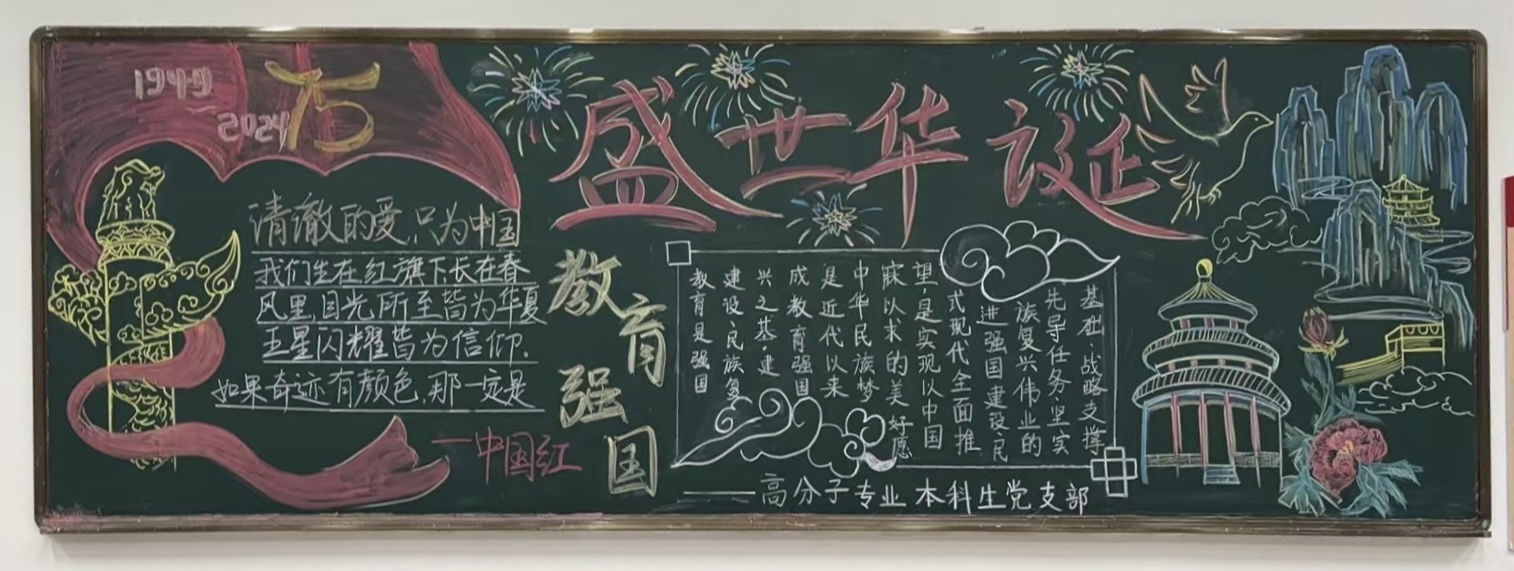 1949
2024
75
盛世华诞
清澈的爱,只为中国
我们生在红旗下长在春
风里,目光所至皆为华夏
五星闪耀皆为信仰.
如果奇迹有颜色,那一定是
—中国红
教育强国
教育是强国
建设、民族复
兴之基,建
成教育强国
是近代以来
中华民族梦
寐以求的美好愿
望,是实现以中国
式现代全面推
进强国建设、民
族复兴伟业的
先导任务、坚实
基础、战略支撑
——高分子专业本科生党支部